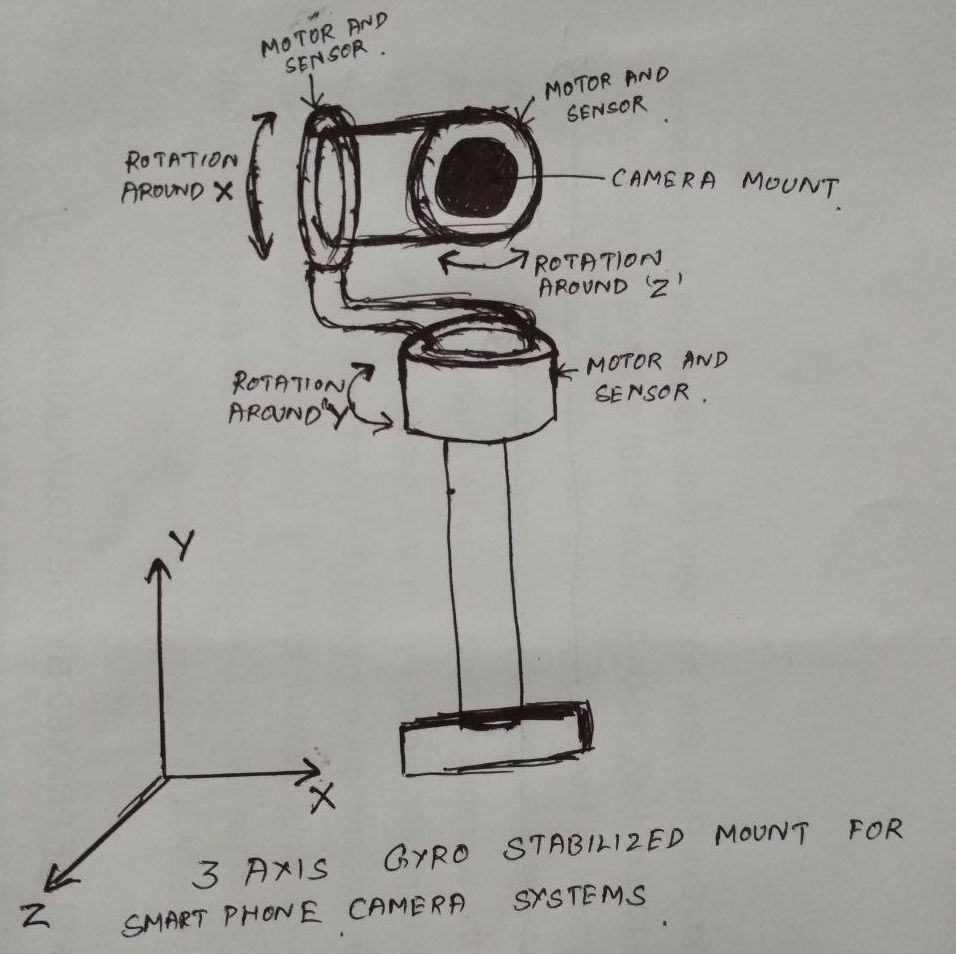 MOTOR AND
SENSOR.
MOTOR AND
SENSOR.
ROTATION
AROUND X
CAMERA MOUNT.
ROTATION
AROUND 'Z'
MOTOR AND
SENSOR.
ROTATION
AROUND 'Y'
Y
X
Z
3 AXIS GYRO STABILIZED MOUNT FOR
SMART PHONE CAMERA SYSTEMS.